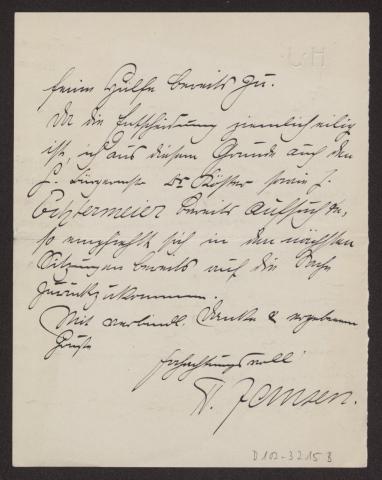 seine Hülfe bereits zu.
Da die Entscheidung ziemlich eilig
ist, ich aus diesem Grunde auch den
H. Bürgermstr Dr Köster sowie H.
Echtermeier bereits aufsuchte,
so empfiehlt sich in den nächsten
Sitzungen bereits auf die Sache
zurückzukommen.
Mit verbindl. Danke & ergebenem
Gruße
hochachtungsvoll
W. Jansen.
D 102-3215 B